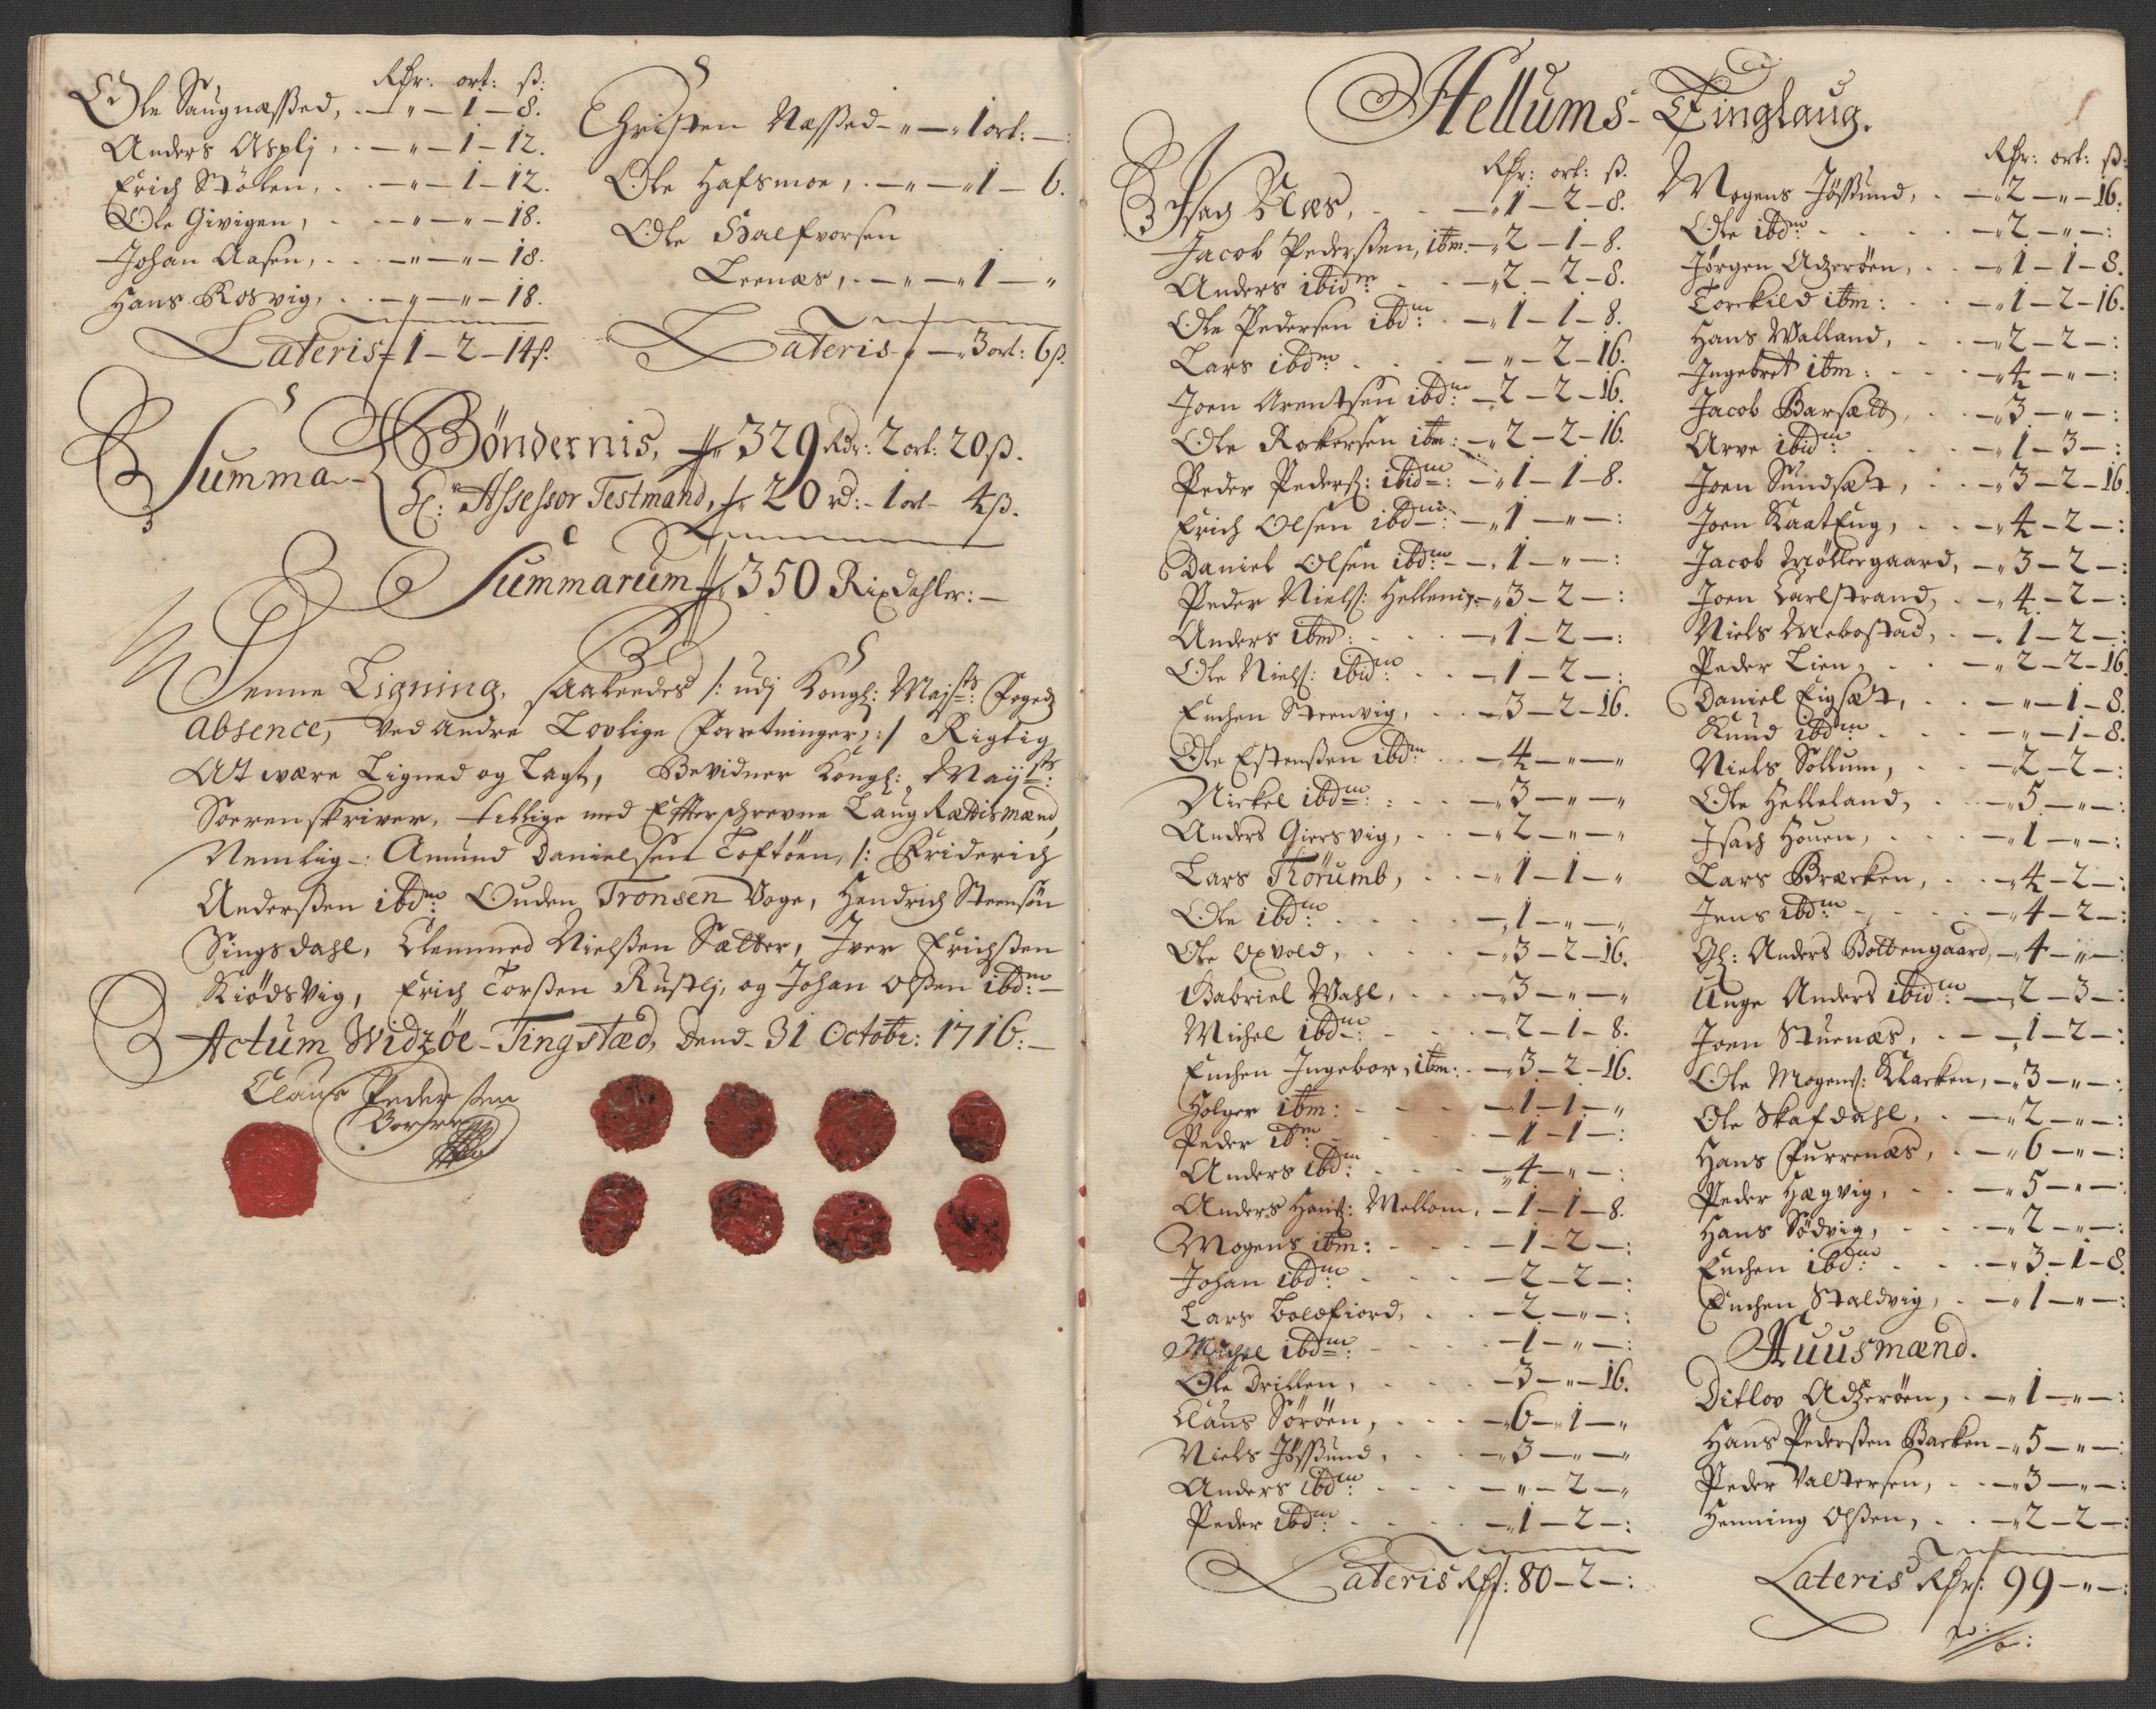 Rdr: ort: ß:
Ole Saugnæßed, . — " — 1 — 8.
Anders Asplj, . — " — 1 — 12.
Erich Stölen, . . — " — 1 — 12.
Ole Givigen, . — " — " — 18.
Johan Aasen, . . — " — " — 18.
Hans Rosvig, . . — " — " — 18.
Lateris 1 — 2 — 14ß.
Christen Næßed — " — " 1 ort: —
Ole Hafsmoe, . — " — " 1 — 6.
Ole Halfvorsen
Leenæs, . — " — " 1 — "
Lateris — " 3 ort: 6ß.
Summa
Böndernis, 329 Rdr: 2 ort: 20ß.
Hr: Assessor Testmand, 20 rd: — 1 ort — 4ß.
Summarum 350 Rixdahler: —
Denne Ligning, saaleedes /: udj Kongl: Majsts: Fogedz
Absence, ved andre Lovlige Forretninger, :/ Rigtig
At være Ligned og Lagt, Bevidner Kongl: Mayts:
Sorenskriver, tillige med Effterschrevne LaugRættismænd,
Nemlig: Amund Danielsen Toftöen, /: Friderich
Anderßen ibdm: Ouden Tronsen Voge, Hendrich Steensön
Singsdahl, Clemmed Nielßen Sætter, Iver Erichßen
Kiödsvig, Erich Torßen Rustlj, og Johan Olßen ibdm:
Actum Widzöe-Tingstæd, Dend 31 Octobr: 1716: —
Claus Pedersen
Hellums-Tinglaug.
Rdr: ort: ß.
Isach Næs, . . — " 1 — 2 — 8.
Jacob Pederßen, itm. — " 2 — 1 — 8.
Anders ibidm: . . — " 2 — 2 — 8.
Ole Pedersen ibdm: . — " 1 — 1 — 8.
Lars ibdm: . . . — " — 2 — 16.
Joen Arentsen ibdm: — 2 — 2 — 16.
Ole Rokersen itm: — " 2 — 2 — 16.
Peder Peders: ibidm: — " 1 — 1 — 8.
Erich Olsen ibdm: — " 1 — " — :
Daniel Olsen ibdm: — " 1 — " — :
Peder Niels: Hellem, — " 3 — 2 — :
Anders ibmd: . . . — " 1 — 2 — :
Ole Niels: ibidm: . . — 1 — 2 — :
Enchen Steenvig, . . — 3 — 2 — 16.
Ole Estensßen ibdm: . . — 4 — " — "
Nickel ibdm: . . . — " 3 — " — "
Anders Giersvig, . . — " 2 — " — "
Lars Thörumb, . . — " 1 — 1 — "
Ole ibdm: . . . . — " 1 — " — "
Ole Oxvold, . . . . — " 3 — 2 — 16.
Gabriel Wahl, . . . — " 3 — " — "
Michel ibdm: . . . — 2 — 1 — 8.
Enchen Ingebor, itm: . — " 3 — 2 — 16.
Holger itm: . . . . — 1 — 1 — "
Peder ibm: . . . . — 1 — 1 — :
Anders ibdm: . . . . — 4 — " — :
Anders Hans: Mellom, — 1 — 1 — 8.
Mogens itm: . . . — 1 — 2 — :
Johan ibdm: . . . — 2 — 2 — :
Lars Boldfiord, . . — 2 — " — :
Michel ibdm: . . . . — 1 — " — :
Ole Drillen, . . . — 3 — " — 16.
Claus Söröen, . . . — " 6 — " 1 — "
Niels Jössund, . . — " 3 — " — "
Anders ibdm: . . . — " — 2 — "
Peder ibdm: . . . — " 1 — 2 — :
Lateris Rdr: 80 — 2 — :
Rdr: ort: ß:
Mogens Jössund, . . — " 2 — " — 16.
Ole ibdm: . . . . — " 2 — " — :
Jörgen Adzeröen, . . — " 1 — 1 — 8.
Torckild itm: . . . — " 1 — 2 — 16.
Hans Walland, . . — " 2 — 2 — :
Ingebret itm: . . . — " 4 — " — :
Jacob Barsætt, . . — " 3 — " — :
Arve ibidm: . . . — " 1 — 3 — :
Joen Sundsæt, . . — " 3 — 2 — 16.
Joen Kaateng, . . — " 4 — 2 — :
Jacob Möllergaard, — " 3 — 2 — :
Joen Carlstrand, . — " 4 — 2 — :
Niels Mebostad, . — " 1 — 2 — :
Peder Lien, . . . — " 2 — 2 — 16
Daniel Eigsæt, . . — " — 1 — 8.
Knud ibdm: . . . — " — 1 — 8.
Niels Sollum, . . — " 2 — 2 — :
Ole Helleland, . . — " 5 — " — :
Isach Houen, . . . — " 1 — " — :
Lars Bræcken, . . — " 4 — 2 — :
Jens ibdm: . . . . — " 4 — 2 — :
Gl: Anders Bottengaard, — 4 — " — :
Unge Anders ibidm: — " 2 — 3 — :
Joen Stuenæs, . . — " 1 — 2 — :
Ole Mogens: Klacken, — " 3 — " — :
Ole Skafdahl, . . — " 2 — " — :
Hans Furrenæs, . — " 6 — " — :
Peder Hægvig, . . — " 5 — " — :
Hans Södvig, . . . — " 2 — " — :
Enchen ibdm: . . . — " 3 — 1 — 8.
Enchen Staldvig, . — " 1 — " — :
Huusmænd.
Ditlov Adzeröen, . — " 1 — " — :
Hans Pederßen Backen — " 5 — " — :
Peder Valtersen, . . — " 3 — " — :
Henning Olßen, . . — " 2 — 2 — :
Lateris Rdr: 99 — " — :